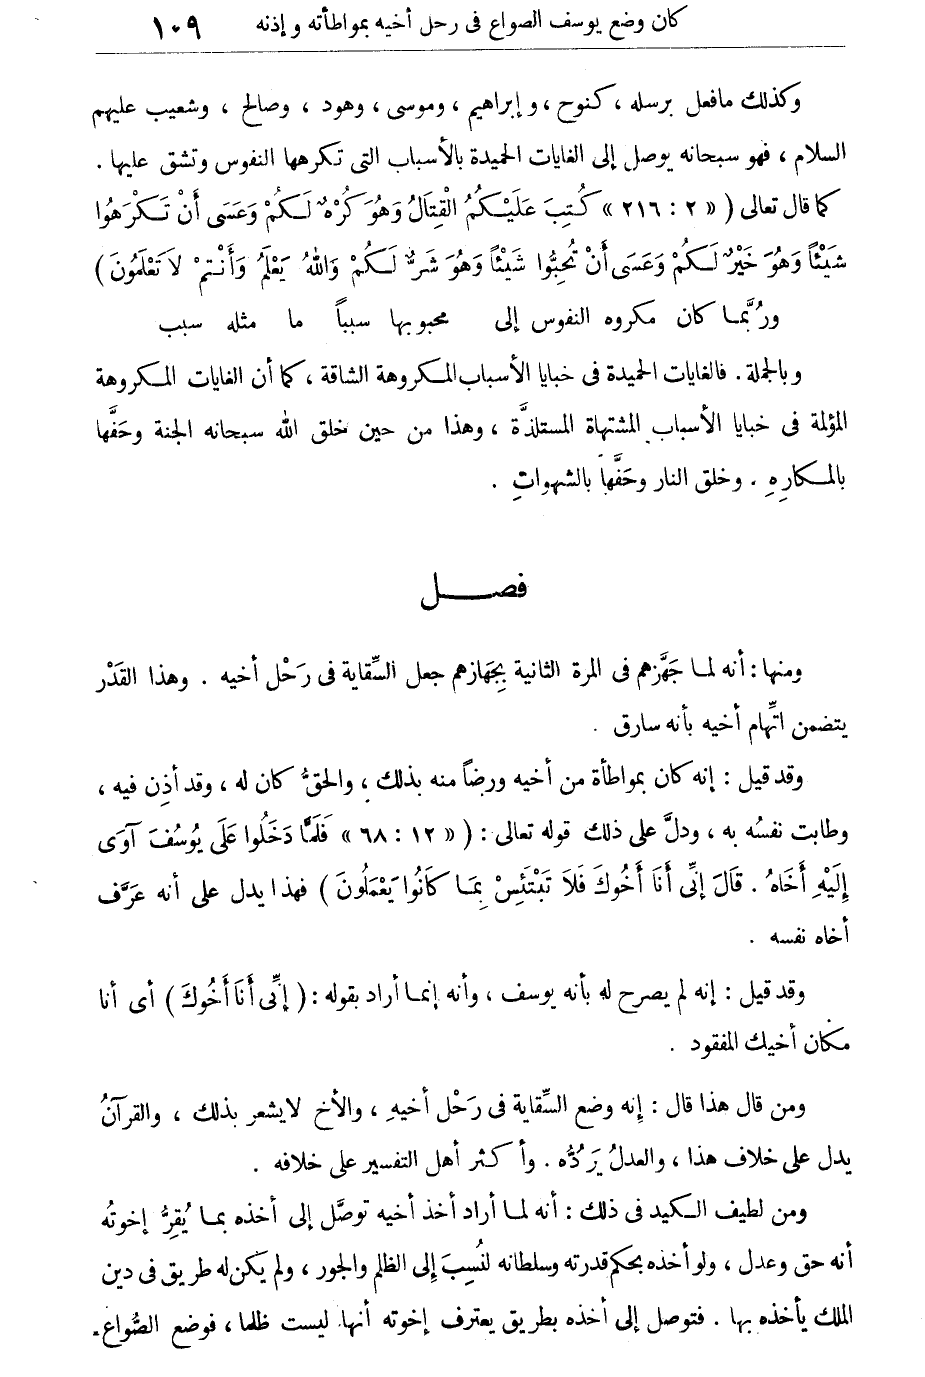 كان وضع يوسف الصواع فى رحل أخيه بمواطأته وإذنه ١٠٩
وكذلك مافعل برسله ، كنوح ، وإبراهيم ، وموسى ، وهود ، وصالح ، وشعيب عليهم
السلام ، فهو سبحانه يوصل إلى الغايات الحميدة بالأسباب التى تكرهها النفوس وتشق عليها .
كما قال تعالى ( « ٢ : ٢١٦ » كُتِبَ عَلَيْكُمُ الْقِتَالُ وَهُوَ كُرْهٌ لَكُمْ وَعَسَى أَنْ تَكْرَهُوا
شَيْئاً وَهُوَ خَيْرٌ لَكُمْ وَعَسَى أَنْ تُحِبُّوا شَيْئاً وَهُوَ شَرٌّ لَكُمْ وَاللهُ يَعْلَمُ وَأَنْتمْ لاَ تَعْلَمُونَ )
ورُبَّمـا كان مكروه النفوس إلى محبوبها سبباً ما مثله سبب
وبالجملة . فالغايات الحميدة فى خبايا الأسباب المكروهة الشاقة ، كما أن الغايات المكروهة
المؤلمة فى خبايا الأسباب المشتهاة المستلذَّة ، وهذا من حين خلق الله سبحانه الجنة وحَفَّها
بالمكارِهِ . وخلق النار وحَفَّها بالشهواتِ .
فصـــل
ومنها : أنه لما جَهَّزهم فى المرة الثانية بِجَهازهم جعل السِّقاية فى رَحْل أخيه . وهذا القَدْر
يتضمن اتِّهام أخيه بأنه سارق .
وقد قيل : إنه كان بمواطأة من أخيه ورضاً منه بذلك ، والحقُّ كان له ، وقد أذِن فيه ،
وطابت نفسُه به ، ودلَّ على ذلك قوله تعالى : ( « ١٢ : ٦٨ » فَلَمَّا دَخَلُوا عَلَى يُوسُفَ آوَى
إِلَيْهِ أَخَاهُ . قَالَ إِنِّى أَنَا أَخُوكَ فَلاَ تَبْتَئِسْ بِمَا كَانُوا يَعْمَلُونَ ) فهذا يدل على أنه عَرَّف
أخاه نفسه .
وقد قيل : إنه لم يصرح له بأنه يوسف ، وأنه إنما أراد بقوله : ( إِنِّى أَنَا أَخُوكَ ) أى أنا
مكان أخيك المفقود .
ومن قال هذا قال : إنه وضع السِّقاية فى رَحْل أخيهِ ، والأخ لايشعر بذلك ، والقرآنُ
يدل على خلاف هذا ، والعدلُ يَرَدُّه . وأكثر أهل التفسير على خلافه .
ومن لطيف الكيد فى ذلك : أنه لما أراد أخذ أخيه توصَّل إلى أخذه بما يُقِرُّ إخوتُه
أنه حق وعدل ، ولو أخذه بحكم قدرته وسلطانه لنُسِبَ إلى الظلم والجور ، ولم يكن له طريق فى دين
الملك يأخذه بها . فتوصل إلى أخذه بطريق يعترف إخوته أنها ليست ظلما ، فوضع الصُّواع